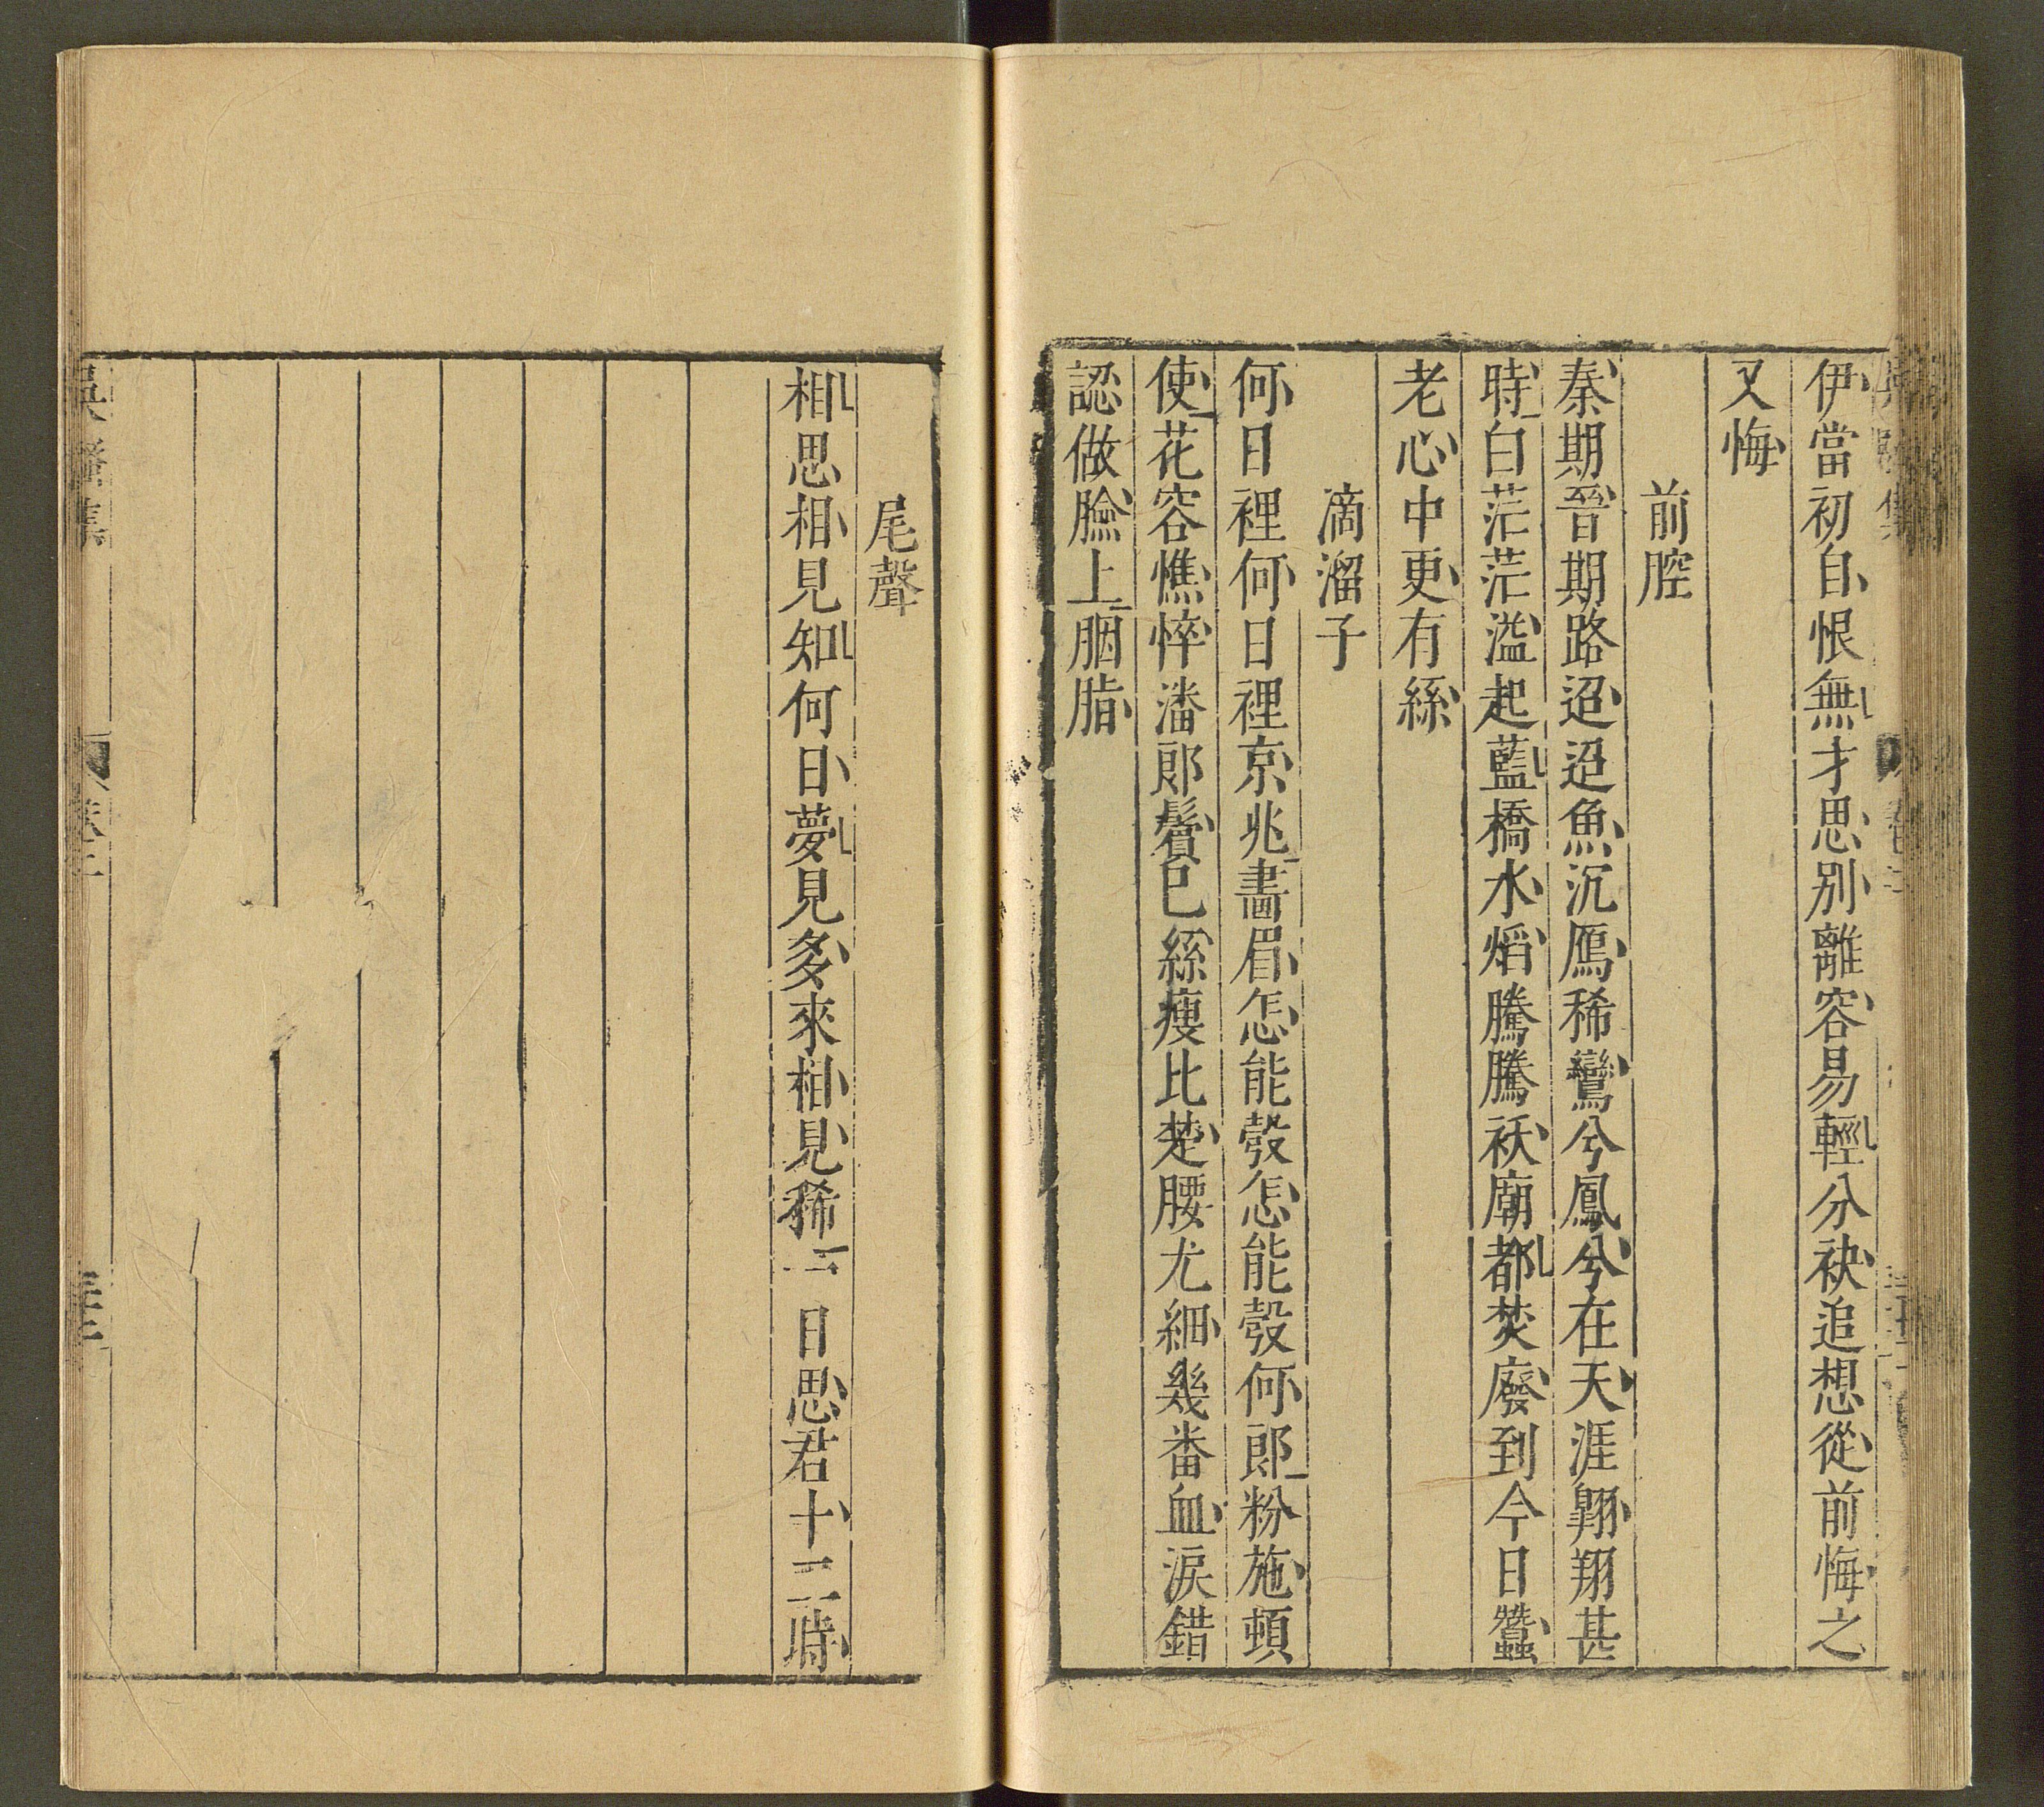 伊當初自恨無才思別離容易輕分袂追想從前悔之
又悔
前腔
秦期晉期路迢迢魚沉鴈稀鸞兮鳳兮在天涯翺翔甚
時白茫茫溢起藍橋水焰騰騰袄廟都焚廢到今日蠶
老心中更有絲
滴溜子
何日裡何日裡京兆畵眉怎能彀怎能彀何郎粉施頓
使花容憔悴潘郎鬢已絲瘦比楚腰尤細幾番血淚錯
認做臉上胭脂
尾聲
相思相見知何日夢見多來相見稀一日思君十二時